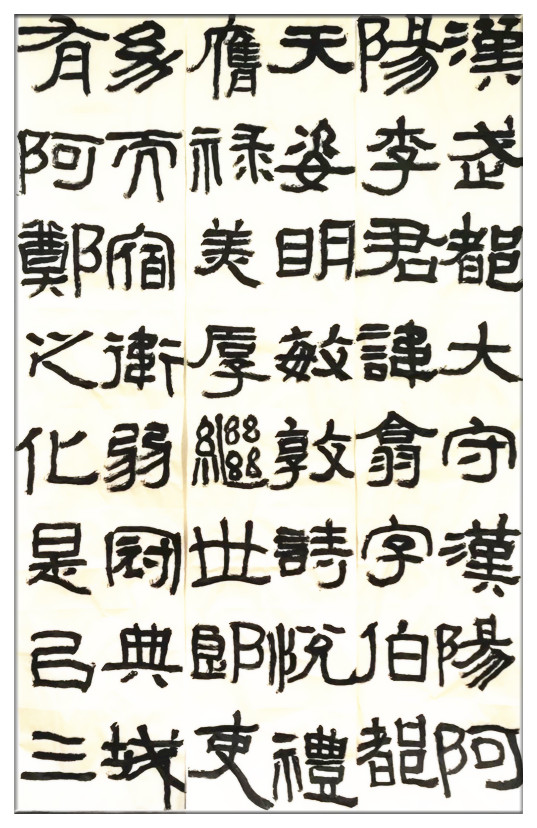 漢武都大守漢陽阿
陽李君諱翕字伯都
天姿明敏敦詩悅禮
膺禄美厚繼世郎吏
幼而宿衛弱冠典城
有阿鄭之化是以三